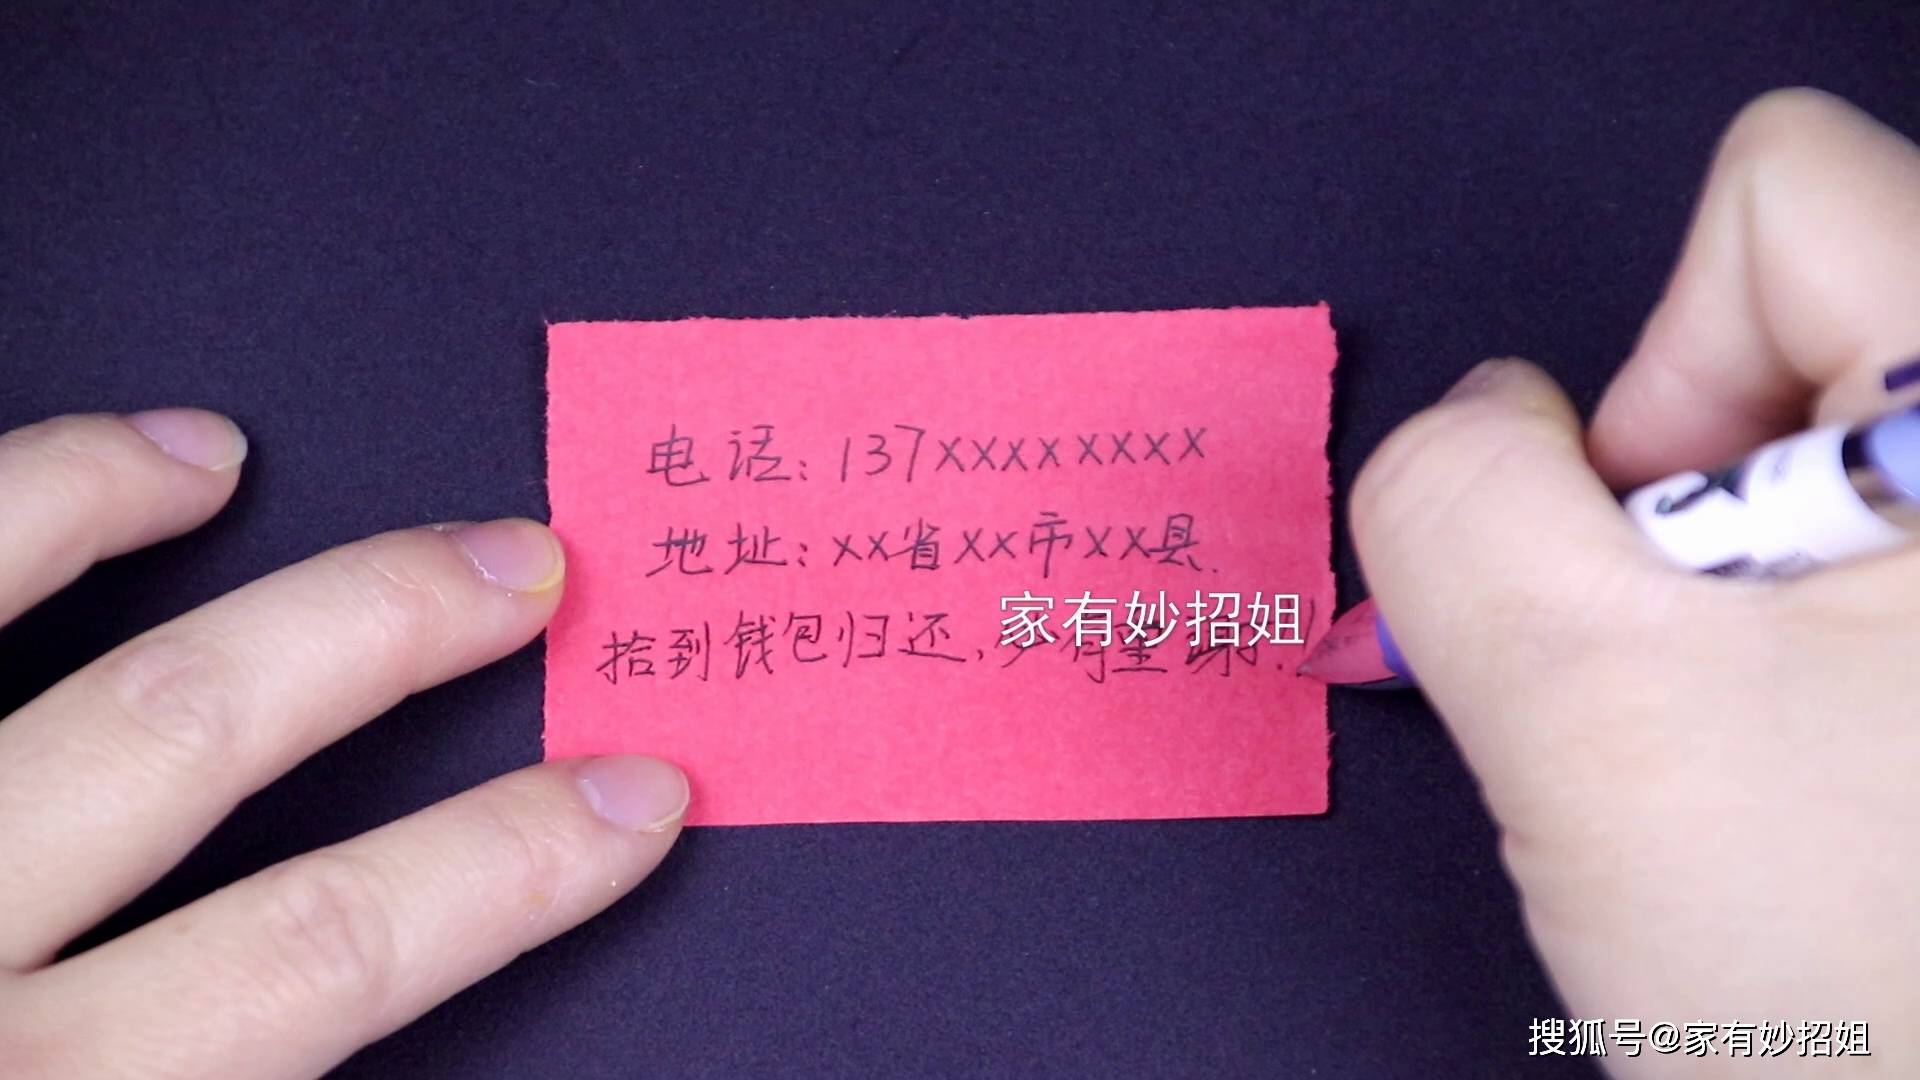 电话：137xxxxxxxx
地址：xx省xx市xx县.
拾到钱包归还，必有重谢！
家有妙招姐
搜狐号@家有妙招姐